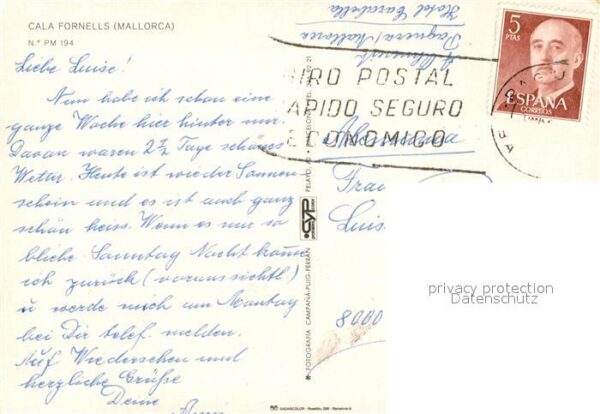 CALA FORNELLS (MALLORCA)
N.° PM 194
Liebe Luise!
Nun habe ich schon eine
ganze Woche hier hinter mir.
Davon waren 2½ Tage schönes
Wetter. Heute ist wieder Sonnen
schein und es ist auch ganz
schön heiss. Wenn es nur so
bliebe. Sonntag Nacht komme
ich zurück (voraussichtl)
u werde mich am Montag
bei Dir telef. melden.
Auf Wiedersehen und
herzliche Grüße
Deine
Hotel Carabella
Paguera/Mallorca
GIRO POSTAL
RAPIDO SEGURO
ECONOMICO
5
PTAS
ESPAÑA
CORREOS
Alemania
Frau
Luis
8000
CYP
FOTOGRAFIA CAMPAÑA-PUIG-FERRAN
privacy protection
Datenschutz